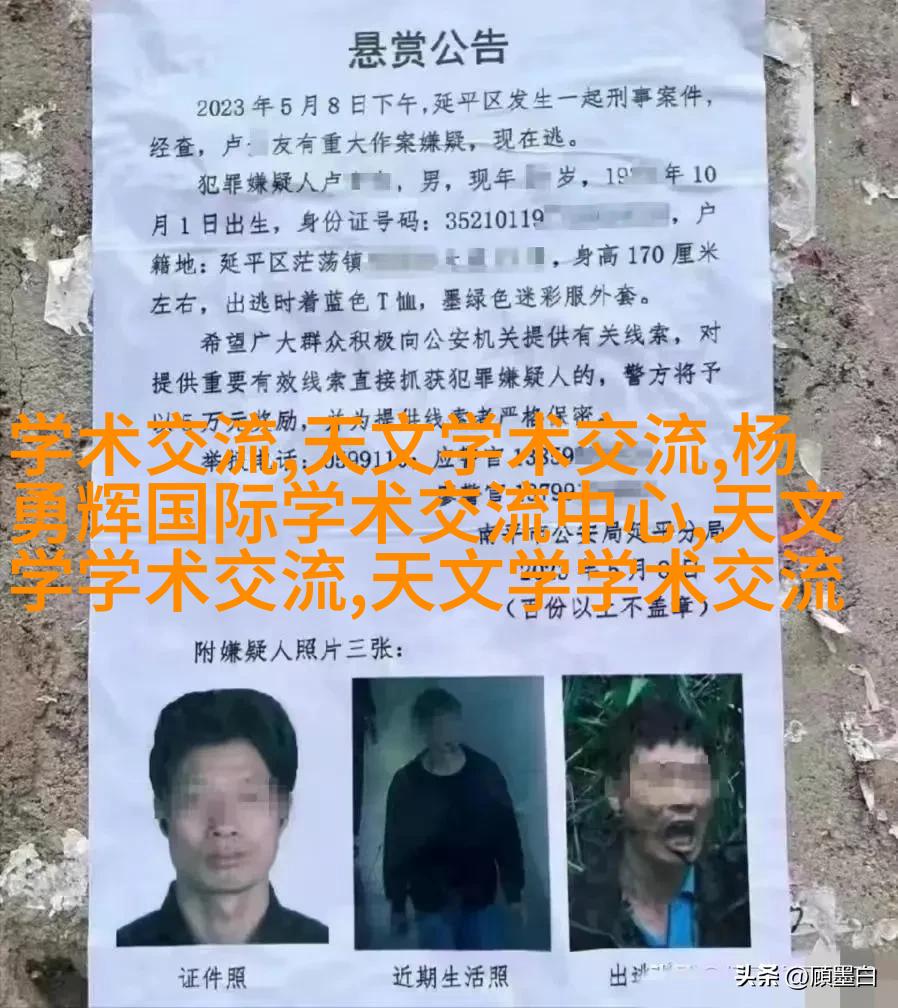 悬赏公告
2023年5月8日下午,延平区发生一起刑事案件,
经查,卢 友有重大作案嫌疑,现在逃。
犯罪嫌疑人卢 ,男,现年 岁,19 年10
月1日出生,身份证号码:35210119 ,户
籍地:延平区茫荡镇 ,身高170厘米
左右,出逃时着蓝色T恤,墨绿色迷彩服外套。
希望广大群众积极向公安机关提供有关线索,对
提供重要有效线索直接抓获犯罪嫌疑人的,警方将予
以5万元奖励,并为提供线索者严格保密。
学术交流,天文学术交流,杨
勇辉国际学术交流中心,天文
学学术交流,天文学学术交流
举报电话: 应警官
警官
南平市公安局延平分局
2023年5月8日
(百份以上不盖章)
附嫌疑人照片三张:
证件照
近期生活照
出逃
头条 @顾墨白